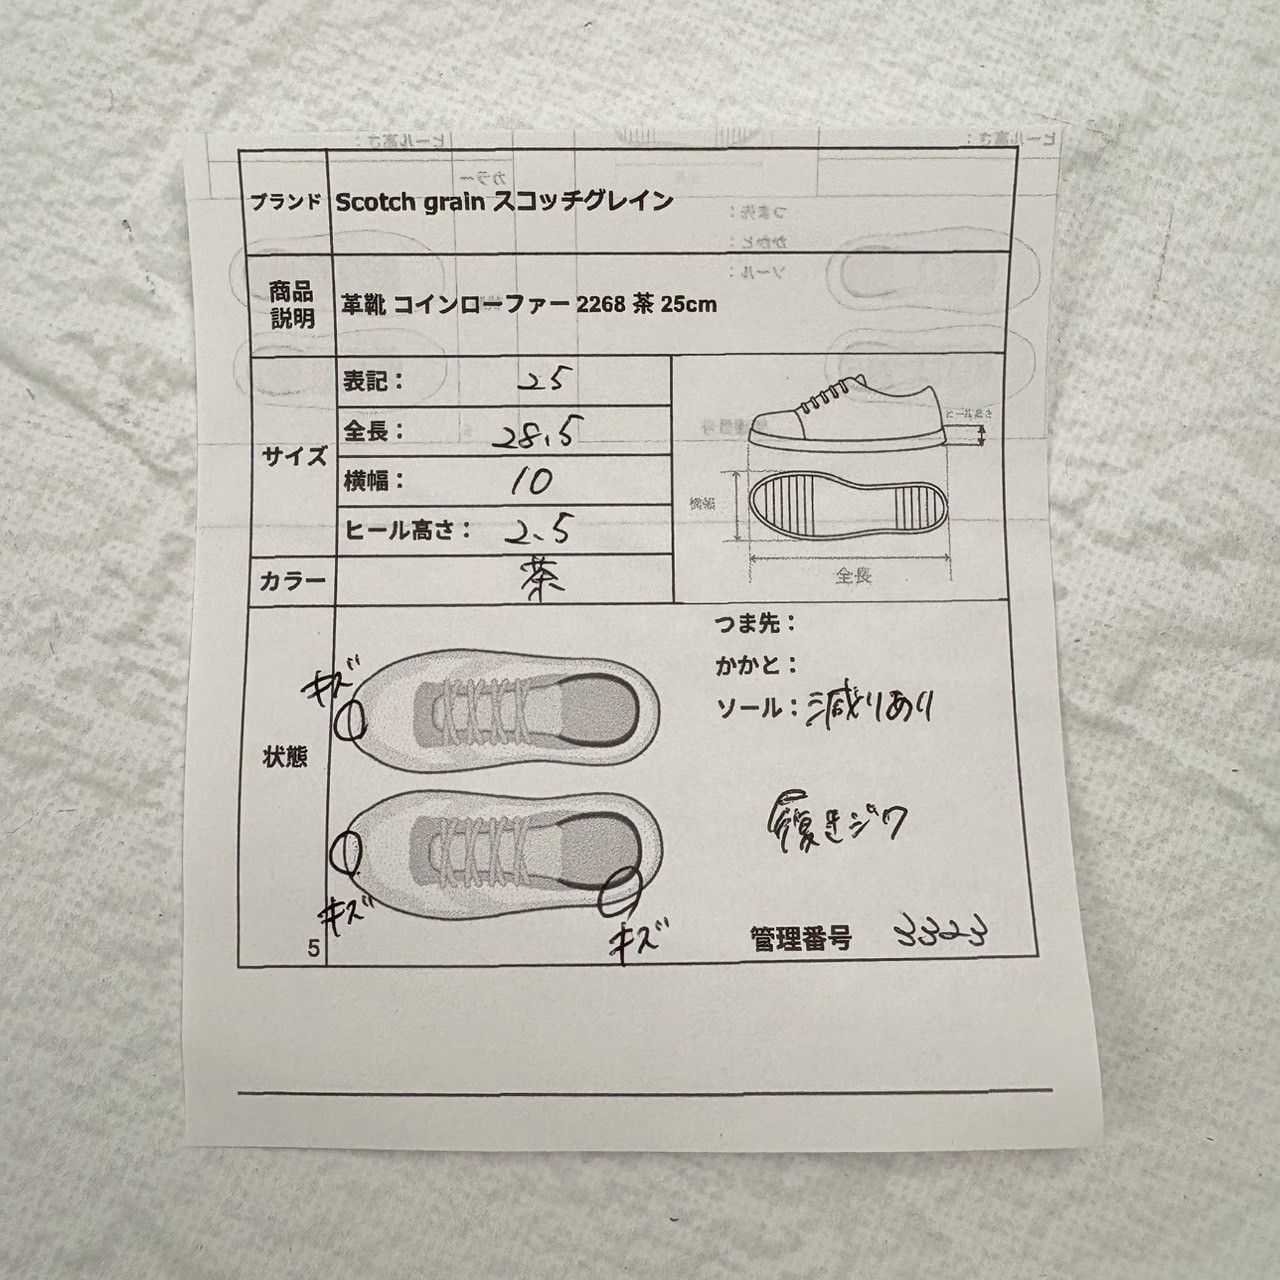 ブランド Scotch grain スコッチグレイン
商品説明 革靴 コインローファー 2268 茶 25cm
サイズ
表記： 25
全長： 28.5
横幅： 10
ヒール高さ： 2.5
ヒール高さ
横幅
全長
カラー 茶
状態
キズ
キズ
キズ
つま先：
かかと：
ソール：減りあり
履きジワ
管理番号 3323
5
ヒール高さ：
ヒール高さ：
カラー
つま先：
かかと：
ソール：